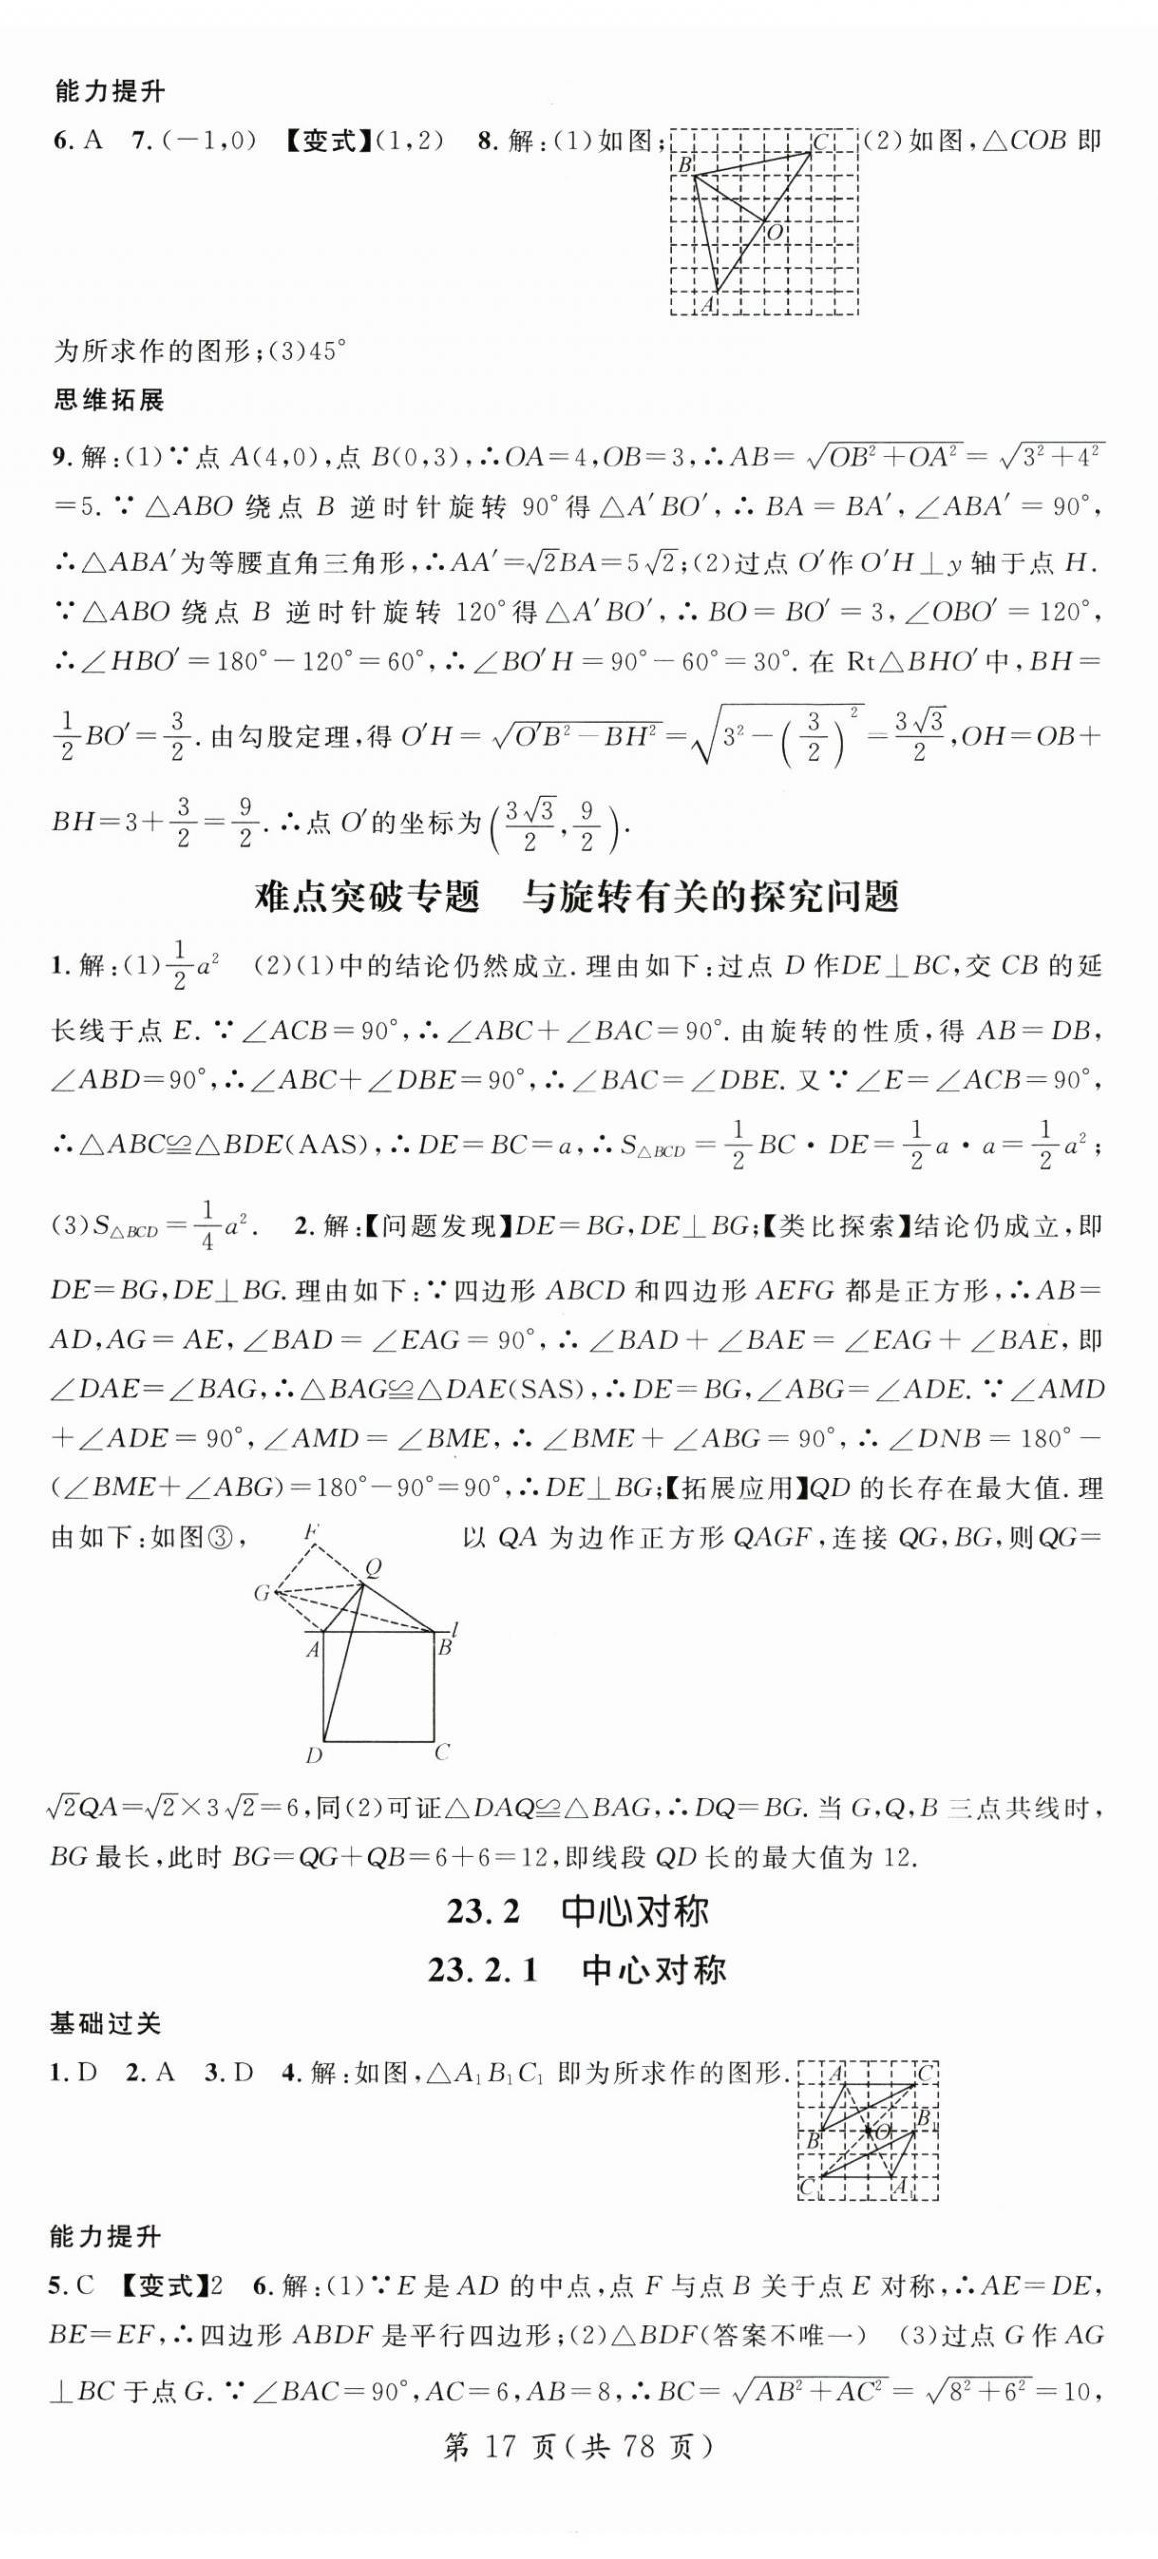 能力提升
6. A 7. (-1,0) 【变式】(1,2) 8. 解:(1)如图; (2)如图,△COB 即
C
B
O
A
为所求作的图形;(3)45°
思维拓展
9. 解:(1)∵点 A(4,0),点 B(0,3),∴OA=4,OB=3,∴AB=√(OB²+OA²)=√(3²+4²)
=5. ∵△ABO 绕点 B 逆时针旋转 90°得△A′BO′,∴BA=BA′,∠ABA′=90°,
∴△ABA′为等腰直角三角形,∴AA′=√2BA=5√2;(2)过点 O′作 O′H⊥y 轴于点 H.
∵△ABO 绕点 B 逆时针旋转 120°得△A′BO′,∴BO=BO′=3,∠OBO′=120°,
∴∠HBO′=180°-120°=60°,∴∠BO′H=90°-60°=30°. 在 Rt△BHO′中,BH=
1/2 BO′=3/2. 由勾股定理,得 O′H=√(O′B²-BH²)=√(3²-(3/2)²)=3√3/2,OH=OB+
BH=3+3/2=9/2. ∴点 O′的坐标为(3√3/2,9/2).
难点突破专题 与旋转有关的探究问题
1. 解:(1)1/2 a² (2)(1)中的结论仍然成立. 理由如下:过点 D 作DE⊥BC,交 CB 的延
长线于点 E. ∵∠ACB=90°,∴∠ABC+∠BAC=90°. 由旋转的性质,得 AB=DB,
∠ABD=90°,∴∠ABC+∠DBE=90°,∴∠BAC=∠DBE. 又∵∠E=∠ACB=90°,
∴△ABC≌△BDE(AAS),∴DE=BC=a,∴S△BCD=1/2 BC·DE=1/2 a·a=1/2 a²;
(3)S△BCD=1/4 a². 2. 解:【问题发现】DE=BG,DE⊥BG;【类比探索】结论仍成立,即
DE=BG,DE⊥BG. 理由如下:∵四边形 ABCD 和四边形 AEFG 都是正方形,∴AB=
AD,AG=AE,∠BAD=∠EAG=90°,∴∠BAD+∠BAE=∠EAG+∠BAE,即
∠DAE=∠BAG,∴△BAG≌△DAE(SAS),∴DE=BG,∠ABG=∠ADE. ∵∠AMD
+∠ADE=90°,∠AMD=∠BME,∴∠BME+∠ABG=90°,∴∠DNB=180°-
(∠BME+∠ABG)=180°-90°=90°,∴DE⊥BG;【拓展应用】QD 的长存在最大值. 理
由如下:如图③, 以 QA 为边作正方形 QAGF,连接 QG,BG,则QG=
F
Q
G
l
A B
D C
√2QA=√2×3√2=6,同(2)可证△DAQ≌△BAG,∴DQ=BG. 当 G,Q,B 三点共线时,
BG 最长,此时 BG=QG+QB=6+6=12,即线段 QD 长的最大值为 12.
23.2 中心对称
23.2.1 中心对称
基础过关
1. D 2. A 3. D 4. 解:如图,△A₁B₁C₁ 即为所求作的图形.
A C
B O B₁
C₁ A₁
能力提升
5. C 【变式】2 6. 解:(1)∵E 是 AD 的中点,点 F 与点 B 关于点 E 对称,∴AE=DE,
BE=EF,∴四边形 ABDF 是平行四边形;(2)△BDF(答案不唯一) (3)过点 G 作 AG
⊥BC 于点 G. ∵∠BAC=90°,AC=6,AB=8,∴BC=√(AB²+AC²)=√(8²+6²)=10,
第 17 页(共 78 页)